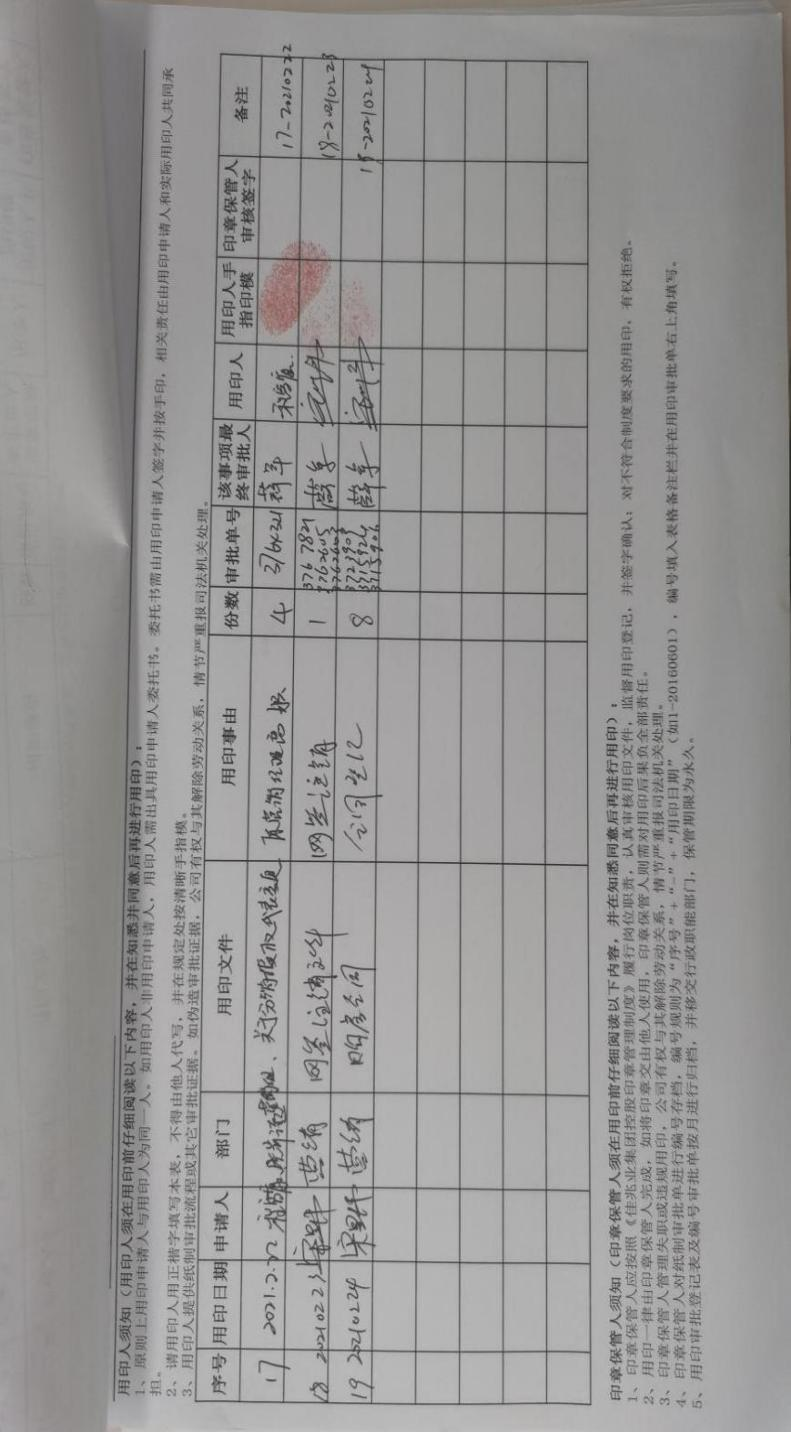 用印人须知（用印人须在用印前仔细阅读以下内容，并在知悉并同意后再进行用印）：
1、原则上用印申请人与用印人为同一人。如用印人非用印申请人，用印人需出具用印申请人委托书。委托书需由用印申请人签字并按手印，相关责任由用印申请人和实际用印人共同承
担。
2、请用印人用正楷字填写本表，不得由他人代写，并在规定处按清晰手指模。
3、用印人提供纸制审批流程或其它审批证据。如伪造审批证据，公司有权与其解除劳动关系，情节严重报司法机关处理。
序号 用印日期 申请人 部门 用印文件 用印事由 份数 审批单号 该事项最终审批人 用印人 用印人手指印模 印章保管人审核签字 备注
17 2021.2.22 4 3764321 17-20210222
18 20210223 营销 网签注销文件 网签注销 1 3767821 18-20210223
19 20210224 营销 购房合同 合同登记 8 3723909 3715924 3715906 19-20210224
印章保管人须知（印章保管人须在用印前仔细阅读以下内容，并在知悉同意后再进行用印）：
1、印章保管人应按照《佳兆业集团控股印章管理制度》履行岗位职责，认真审核用印文件，监督用印登记，并签字确认；对不符合制度要求的用印，有权拒绝。
2、用印一律由印章保管人完成，如将印章交由他人使用，印章保管人则需对用印后果负全部责任。
3、印章保管人管理失职或违规用印，公司有权与其解除劳动关系，情节严重报司法机关处理。
4、印章保管人对纸制审批单进行编号存档，编号规则为“序号”+“-”+“用印日期”（如1-20160601），编号填入表格备注栏并在用印审批单右上角填写。
5、用印审批登记表及编号审批单按月进行归档，并移交行政职能部门，保管期限为永久。